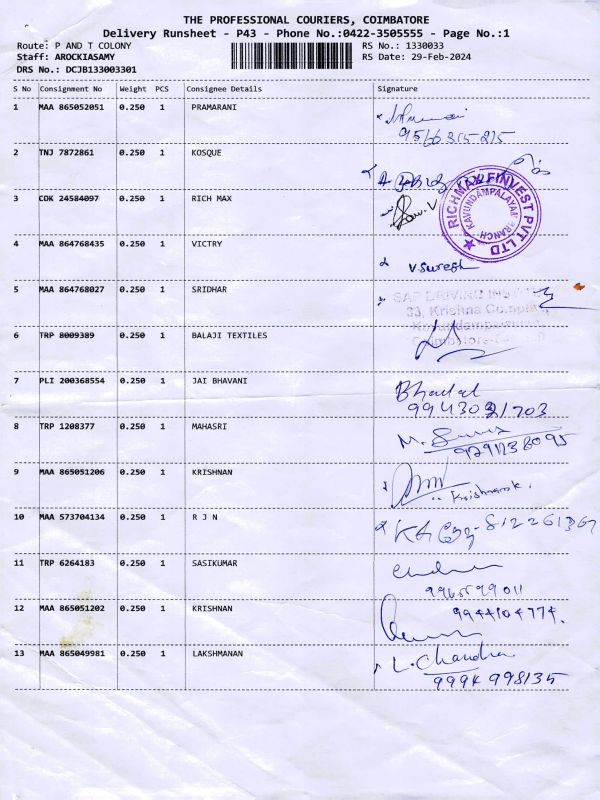 THE PROFESSIONAL COURIERS, COIMBATORE
Delivery Runsheet - P43 - Phone No.:0422-3505555 - Page No.:1
Route: P AND T COLONY RS No.: 1330033
Staff: AROCKIASAMY RS Date: 29-Feb-2024
DRS No.: DCJB133003301
S No Consignment No Weight PCS Consignee Details Signature
1 MAA 865052051 0.250 1 PRAMARANI
9566315215
2 TNJ 7872861 0.250 1 KOSQUE
3 COK 24584097 0.250 1 RICH MAX
RICHMAX FINVEST PVT LTD
KAVUNDAMPALAYAM BRANCH
4 MAA 864768435 0.250 1 VICTRY
V.Suregh
5 MAA 864768027 0.250 1 SRIDHAR
SAP DRIVING
33, Krishna Complex
6 TRP 8009389 0.250 1 BALAJI TEXTILES
7 PLI 200368554 0.250 1 JAI BHAVANI
8 TRP 1208377 0.250 1 MAHASRI
9 MAA 865051206 0.250 1 KRISHNAN
10 MAA 573704134 0.250 1 R J N
11 TRP 6264183 0.250 1 SASIKUMAR
12 MAA 865051202 0.250 1 KRISHNAN
9944104774.
13 MAA 865049981 0.250 1 LAKSHMANAN
L. Chandra
9994 998135